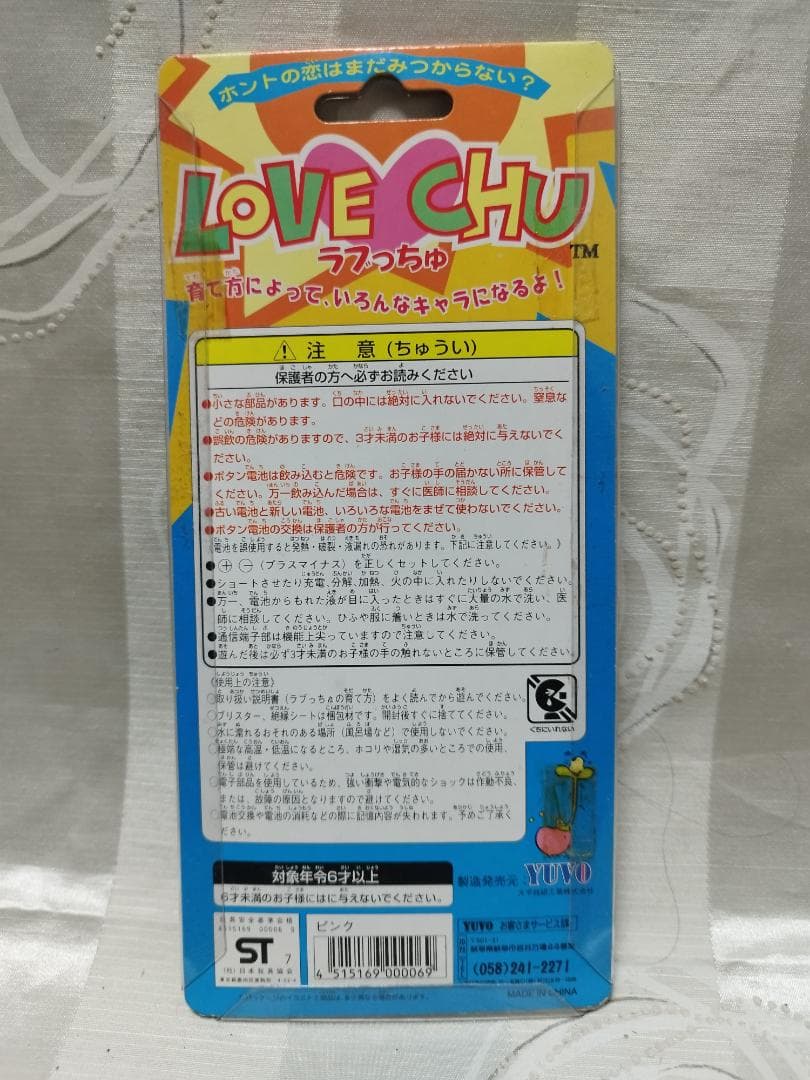 ホントの恋はまだみつからない？
LOVE CHU
TM
ラブっちゅ
育て方によって、いろんなキャラになるよ！
注 意（ちゅうい）
保護者の方へ必ずお読みください
小さな部品があります。口の中には絶対に入れないでください。窒息な
どの危険があります。
誤飲の危険がありますので、3才未満のお子様には絶対に与えないでく
ださい。
ボタン電池は飲み込むと危険です。お子様の手の届かない所に保管して
ください。万一飲み込んだ場合は、すぐに医師に相談してください。
古い電池と新しい電池、いろいろな電池をまぜて使わないでください。
ボタン電池の交換は保護者の方が行ってください。
《電池を誤使用すると発熱・破裂・液漏れの恐れがあります。下記に注意してください。》
●⊕⊖（プラスマイナス）を正しくセットしてください。
●ショートさせたり充電、分解、加熱、火の中に入れたりしないでください。
●万一、電池からもれた液が目に入ったときはすぐに大量の水で洗い、医
師に相談してください。ひふや服に着いときは水で洗ってください。
●通信端子部は機能上尖っていますので注意してください。
●遊んだ後は必ず3才未満のお子様の手の触れないところに保管してください。
《使用上の注意》
○取り扱い説明書（ラブっちゅの育て方）をよく読んでから遊んでください。
○ブリスター、絶縁シートは梱包材です。開封後すぐに捨ててください。
○水に濡れるおそれのある場所（風呂場など）で使用しないでください。
○極端な高温・低温になるところ、ホコリや湿気の多いところでの使用、
保管は避けてください。
○電子部品を使用しているため、強い衝撃や電気的なショックは作動不良、
または、故障の原因となりますので避けてください。
○電池交換や電池の消耗などの際に記憶内容が失われます。予めご了承く
ださい。
くちにいれない
対象年令6才以上
6才未満のお子様にはに与えないでください。
製造発売元 YUVO
玩具安全基準合格
4515169 00006 9
ST 7
（社）日本玩具協会
ピンク
4 515169 000069
YUVO お客さまサービス課
(058)241-2271
MADE IN CHINA